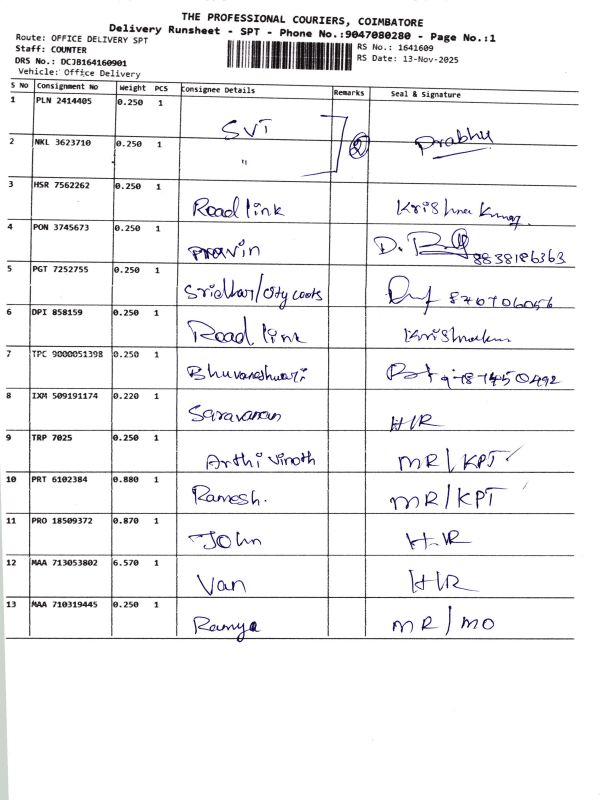 THE PROFESSIONAL COURIERS, COIMBATORE
Delivery Runsheet - SPT - Phone No.:9047080280 - Page No.:1
Route: OFFICE DELIVERY SPT
Staff: COUNTER
DRS No.: DCJB164160901
Vehicle: Office Delivery
RS No.: 1641609
RS Date: 13-Nov-2025
S No Consignment No Weight PCS Consignee Details Remarks Seal & Signature
1 PLN 2414405 0.250 1 SVT Prabhu
2 NKL 3623710 0.250 1 " 2
3 HSR 7562262 0.250 1 Road link Krishna Kumar
4 PON 3745673 0.250 1 Pravin D. 8838186363
5 PGT 7252755 0.250 1 Sridhar/City coats 876706056
6 DPI 858159 0.250 1 Road link
7 TPC 9000051398 0.250 1 Bhuvaneshwari 9787450492
8 IXM 509191174 0.220 1 Saravanan H/R
9 TRP 7025 0.250 1 Arthi Vinoth MR/KPT
10 PRT 6102384 0.880 1 Ramesh. MR/KPT
11 PRO 18509372 0.870 1 John H/R
12 MAA 713053802 6.570 1 Van H/R
13 MAA 710319445 0.250 1 Ramya MR/MO